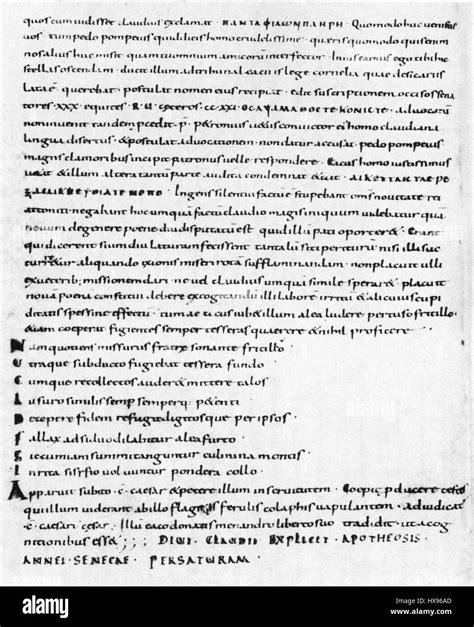 quos cum vidisset claudius exclamat · ΠΑΝΤΑΦΙΛΩΝΠΛΗΡΗ · Quomodo huc venistis
vos · tum pedo pompeius quid dicis homo crudelissime · queris quomodo quis enim
nos alius huc misit quam tu omnium amicorum interfector · In ius eamus ego tibi hic
sellas ostendam · ducit illum ad tribunal eaci is lege cornelia quae de sicariis
latae querebat · postulat nomen eius recipiat · edit suscriptionem occisos sena
tores · XXX · equites · R · U · ceteros · CC XXI ·
non invenit tandem procedit · P · petronius vetus convictor eius homo claudiana
lingua disertus · & postulat advocationem · non datur accusat · pedo pompeius
magnis clamoribus incipit patronus velle respondere · Eacus homo iustissimus
vetat & illum altera tantum parte audita condemnat & ait ·
Ingens silentium factum est stupebant omnes novitate rei
attoniti negabant hoc umquam factum claudio magis iniquum videbatur quam
novum de genere poene diu disputatum est quid illum pati oporteret · Erant
qui dicerent sium diu laturam fecissent tantalum siti periturum nisi illi suc
curreretur aliquando exonis miseri rota sufflaminandam · non placuit ulli
ex veterib; missionem dari · ne vel claudius umquam simile speraret · placuit
nova poena constitui debere excogitandum illi labore · irritu & alicuius cupi
ditatis spes sine effectu · tum aeacus iubet illum alea ludere pertuso fritillo ·
& iam coeperat fugientes semper tesseras quaerere & nihil proficere
Nam quotiens missurus erat resonante fritillo
Utraque subducto fugiebat tessera fundo
Cumque recollectos auderet mittere talos
Lusuro similis semper semperq; petenti
Decepere fidem refugit digitosque per ipsos
Fallax adsiduo dilabitur alea furto
Sic cum iam summi tanguntur culmina montis
Inrita sisyfio volvuntur pondera collo ·
Apparuit subito · C · caesar & petere illum in servitutem · Coepit producere testes
qui illum viderant ab illo flagris ferulis colaphis vapulantem · Adiudicat
· C · caesari caesar · Illum eaco donat is menandro liberto suo tradidit · ut a cog
nitionibus esset ; ; ; DIVI · CLAUDII EXPLICIT · APOTHEOSIS ·
ANNEI · SENECAE PER SATURAM ·
alamy stock photo
HX96AD
www.alamy.com